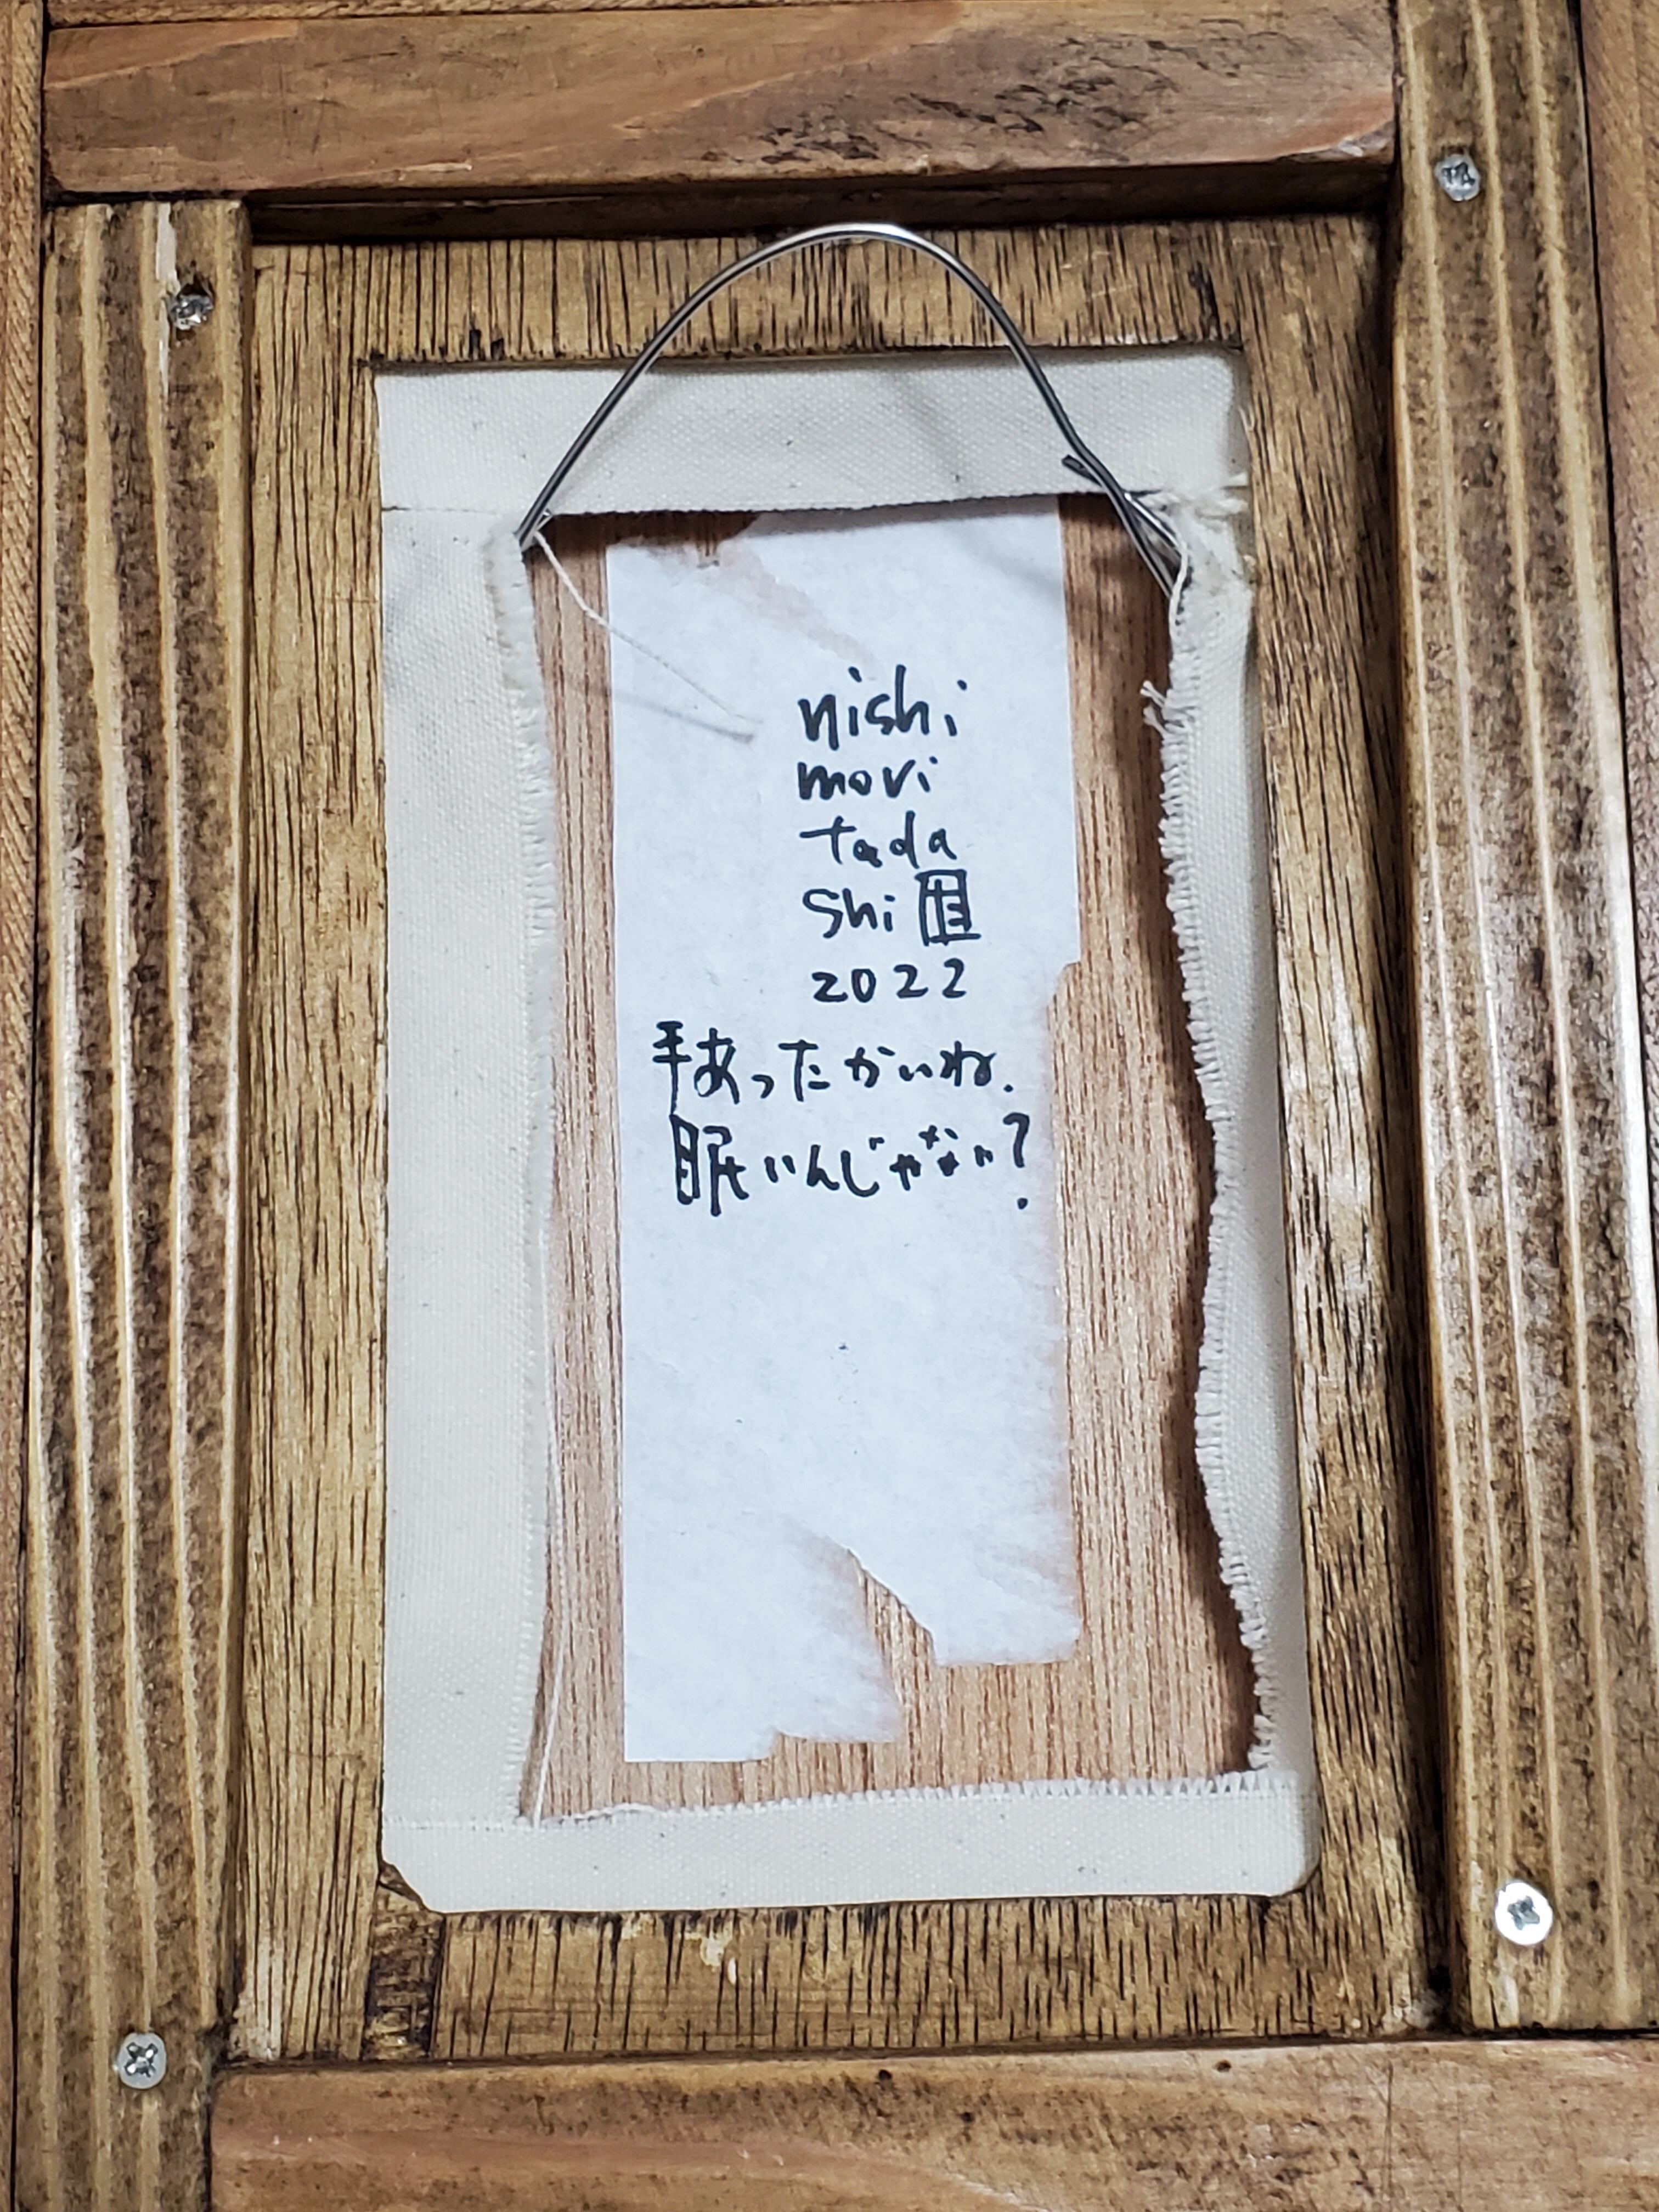 nishi
mori
tada
shi
2022
手あったかいね.
眠いんじゃない?